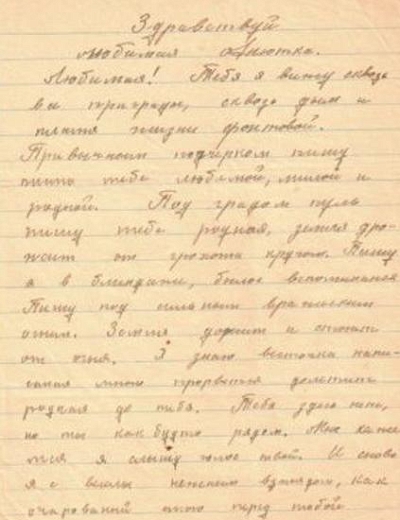 Здравствуй
любимая Анютка.
Любимая! Тебя я вижу сквозь
все преграды, сквозь дым и
пламя жизни фронтовой.
Привычным подчерком пишу
письмо тебе любимой, милой и
родной. Под градом пуль
пишу тебе родная, земля дро-
жит от грохота кругом. Пишу
я в блиндаже, былое вспоминая
Пишу под сильным вражеским
огнем. Земля дрожит и стонет
от огня. Я знаю весточка напи-
санная мною прорвется долетит
родная до тебя. Тебя здесь нет,
но ты как будто рядом. Мне каже
тся я слышу голос твой. И снова
я с взглядом, как
очарованный перед тобой